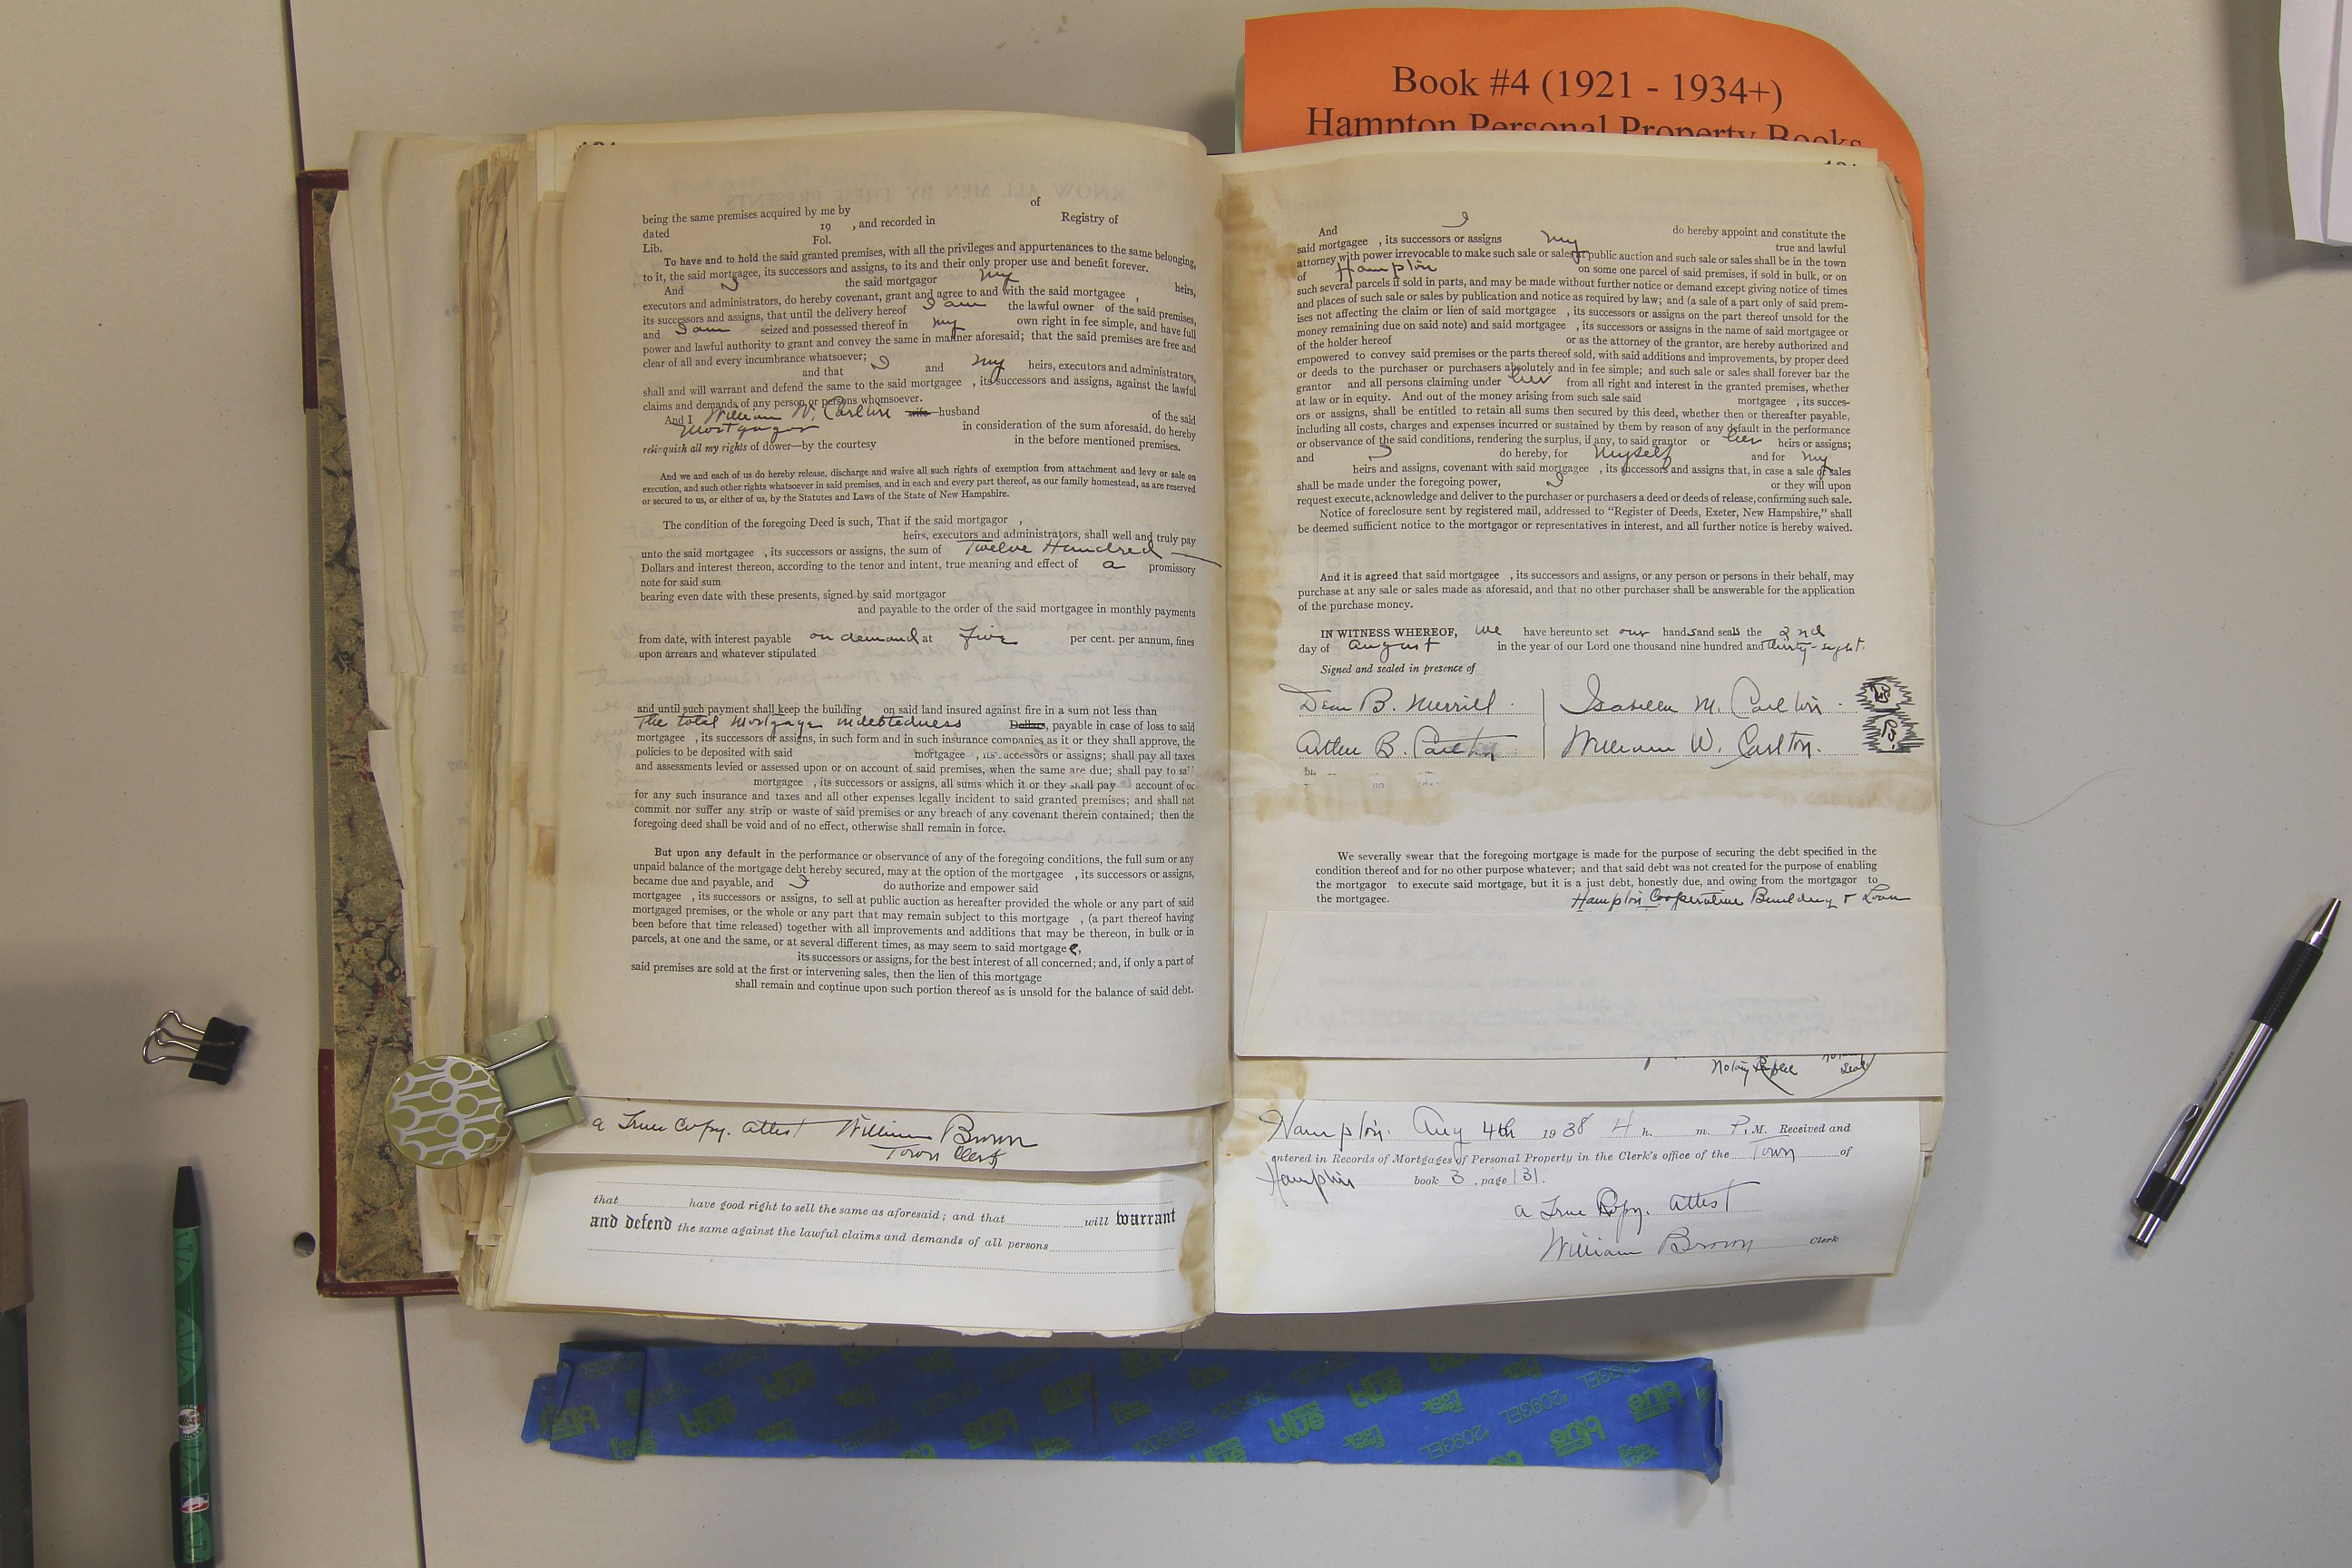 Book #4 (1921 - 1934+)
Hampton Personal Property Books
being the same premises acquired by me by of
dated 19 , and recorded in Registry of
Lib. Fol.
To have and to hold the said granted premises, with all the privileges and appurtenances to the same belonging,
to it, the said mortgagee, its successors and assigns, to its and their only proper use and benefit forever.
And I the said mortgagor my heirs,
executors and administrators, do hereby covenant, grant and agree to and with the said mortgagee ,
its successors and assigns, that until the delivery hereof I am the lawful owner of the said premises,
and I am seized and possessed thereof in my own right in fee simple, and have full
power and lawful authority to grant and convey the same in manner aforesaid; that the said premises are free and
clear of all and every incumbrance whatsoever;
and that I and my heirs, executors and administrators,
shall and will warrant and defend the same to the said mortgagee , its successors and assigns, against the lawful
claims and demands of any person or persons whomsoever.
And I William W. Carlton wife husband of the said
Mortgagor in consideration of the sum aforesaid, do hereby
relinquish all my rights of dower—by the courtesy in the before mentioned premises.
And we and each of us do hereby release, discharge and waive all such rights of exemption from attachment and levy or sale on
execution, and such other rights whatsoever in said premises, and in each and every part thereof, as our family homestead, as are reserved
or secured to us, or either of us, by the Statutes and Laws of the State of New Hampshire.
The condition of the foregoing Deed is such, That if the said mortgagor ,
heirs, executors and administrators, shall well and truly pay
unto the said mortgagee , its successors or assigns, the sum of Twelve Hundred —
Dollars and interest thereon, according to the tenor and intent, true meaning and effect of a promissory
note for said sum
bearing even date with these presents, signed by said mortgagor
and payable to the order of the said mortgagee in monthly payments
from date, with interest payable on demand at five per cent. per annum, fines
upon arrears and whatever stipulated
and until such payment shall keep the building on said land insured against fire in a sum not less than
The total Mortgage indebtedness Dollars, payable in case of loss to said
mortgagee , its successors or assigns, in such form and in such insurance companies as it or they shall approve, the
policies to be deposited with said mortgagee , its successors or assigns; shall pay all taxes
and assessments levied or assessed upon or on account of said premises, when the same are due; shall pay to sa
mortgagee , its successors or assigns, all sums which it or they shall pay account of or
for any such insurance and taxes and all other expenses legally incident to said granted premises; and shall not
commit nor suffer any strip or waste of said premises or any breach of any covenant therein contained; then the
foregoing deed shall be void and of no effect, otherwise shall remain in force.
But upon any default in the performance or observance of any of the foregoing conditions, the full sum or any
unpaid balance of the mortgage debt hereby secured, may at the option of the mortgagee , its successors or assigns,
became due and payable, and I do authorize and empower said
mortgagee , its successors or assigns, to sell at public auction as hereafter provided the whole or any part of said
mortgaged premises, or the whole or any part that may remain subject to this mortgage , (a part thereof having
been before that time released) together with all improvements and additions that may be thereon, in bulk or in
parcels, at one and the same, or at several different times, as may seem to said mortgagee,
its successors or assigns, for the best interest of all concerned; and, if only a part of
said premises are sold at the first or intervening sales, then the lien of this mortgage
shall remain and continue upon such portion thereof as is unsold for the balance of said debt.
a True Copy. attest William Brown
Town Clerk
that have good right to sell the same as aforesaid; and that will warrant
and defend the same against the lawful claims and demands of all persons
And I do hereby appoint and constitute the
said mortgagee , its successors or assigns my true and lawful
attorney with power irrevocable to make such sale or sales at public auction and such sale or sales shall be in the town
of Hampton on some one parcel of said premises, if sold in bulk, or on
such several parcels if sold in parts, and may be made without further notice or demand except giving notice of times
and places of such sale or sales by publication and notice as required by law; and (a sale of a part only of said prem-
ises not affecting the claim or lien of said mortgagee , its successors or assigns on the part thereof unsold for the
money remaining due on said note) and said mortgagee , its successors or assigns in the name of said mortgagee or
of the holder hereof or as the attorney of the grantor, are hereby authorized and
empowered to convey said premises or the parts thereof sold, with said additions and improvements, by proper deed
or deeds to the purchaser or purchasers absolutely and in fee simple; and such sale or sales shall forever bar the
grantor and all persons claiming under her from all right and interest in the granted premises, whether
at law or in equity. And out of the money arising from such sale said mortgagee , its succes-
ors or assigns, shall be entitled to retain all sums then secured by this deed, whether then or thereafter payable,
including all costs, charges and expenses incurred or sustained by them by reason of any default in the performance
or observance of the said conditions, rendering the surplus, if any, to said grantor or her heirs or assigns;
and I do hereby, for myself and for my
heirs and assigns, covenant with said mortgagee , its successors and assigns that, in case a sale of sales
shall be made under the foregoing power, I or they will upon
request execute, acknowledge and deliver to the purchaser or purchasers a deed or deeds of release, confirming such sale.
Notice of foreclosure sent by registered mail, addressed to "Register of Deeds, Exeter, New Hampshire," shall
be deemed sufficient notice to the mortgagor or representatives in interest, and all further notice is hereby waived.
And it is agreed that said mortgagee , its successors and assigns, or any person or persons in their behalf, may
purchase at any sale or sales made as aforesaid, and that no other purchaser shall be answerable for the application
of the purchase money.
IN WITNESS WHEREOF, we have hereunto set our hands and seals the 2nd
day of August in the year of our Lord one thousand nine hundred and thirty-eight.
Signed and sealed in presence of
Dean B. Merrill Isabella M. Carlton
Arthur B. Carlton William W. Carlton.
We severally swear that the foregoing mortgage is made for the purpose of securing the debt specified in the
condition thereof and for no other purpose whatever; and that said debt was not created for the purpose of enabling
the mortgagor to execute said mortgage, but it is a just debt, honestly due, and owing from the mortgagor to
the mortgagee. Hampton Cooperative Building & Loan
Notary Public Notary Seal
Hampton. Aug 4th 1938 4 h. m. P.M. Received and
entered in Records of Mortgages of Personal Property in the Clerk's office of the Town of
Hampton book 3, page 131.
a True Copy. attest
William Brown Clerk